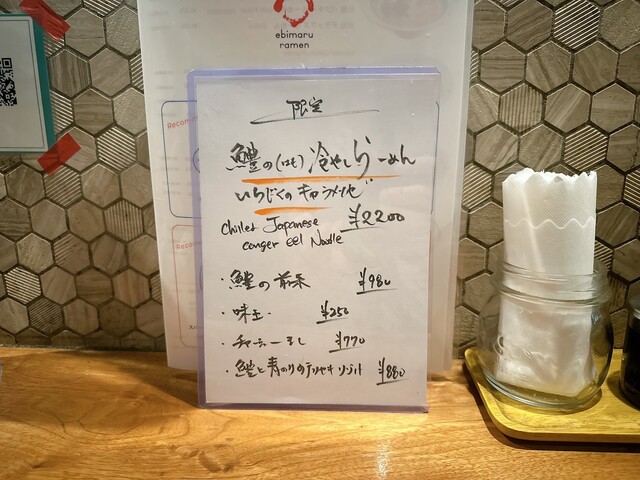 ebimaru
ramen
Recom
限定
鱧の(はも)冷やしらーめん
いちじくのキャラメリゼ
Chilled Japanese ¥2200
conger eel Noodle
・鱧の前菜 ¥980
・味玉 ¥250
・チャーシュー ¥770
・鱧と青のりのテリヤキリゾット ¥880